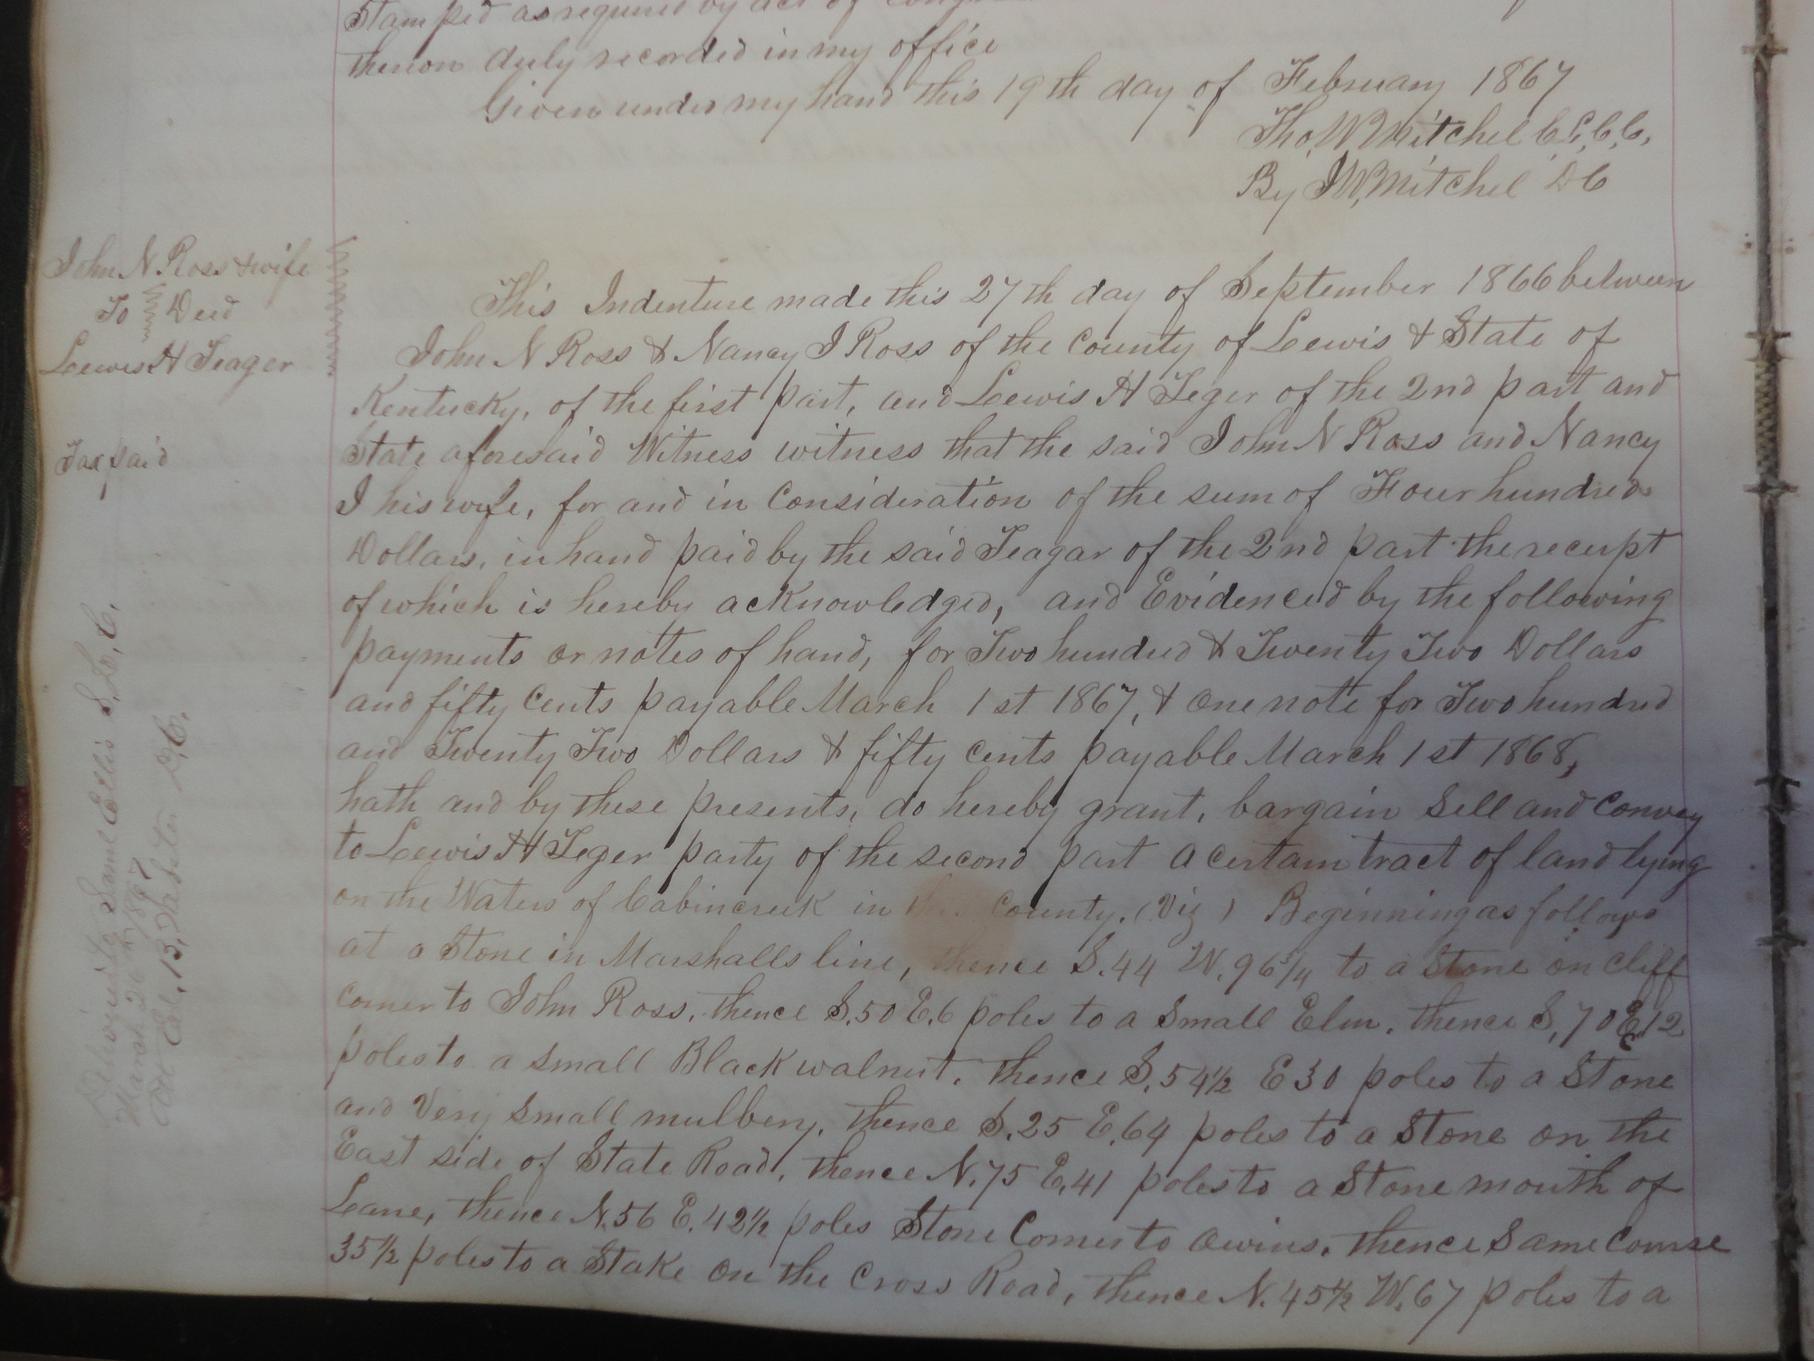 Stamped as required by act of
thereon duly recorded in my office
Given under my hand this 19th day of February 1867
Tho, W Mitchel C L, C, C,
By J W, Mitchel D C
John N Ross & wife
To Deed
Lewis H Teager
Tax paid
This Indenture made this 27th day of September 1866 between
John N Ross & Nancy J Ross of the County of Lewis & State of
Kentucky, of the first part, and Lewis H Teger of the 2nd part and
State aforesaid Witness witness that the said John N Ross and Nancy
J his wife, for and in Consideration of the sum of Four hundred
Dollars, in hand paid by the said Teagar of the 2nd part the receipt
of which is hereby acknowledged, and Evidenced by the following
payments or notes of hand, for Two hundred & Twenty Two Dollars
and fifty Cents payable March 1st 1867, & one note for Two hundred
and Twenty Two Dollars & fifty cents payable March 1st 1868,
hath and by these presents, do hereby grant, bargain Sell and Convey
to Lewis H Teger party of the second part a certain tract of land lying
on the Waters of Cabincreek in this County. (Viz) Beginning as follows
at a Stone in Marshalls line, thence S. 44 W. 96 3/4 to a Stone on Cliff
Corner to John Ross, thence S. 50 E. 6 poles to a Small Elm. thence S, 70 E 12
poles to a small Black walnut. thence S. 54 1/2 E 30 poles to a Stone
and Very Small mulbery. thence S. 25 E. 64 poles to a Stone on the
East side of State Road, thence N. 75 E, 41 poles to a Stone mouth of
Lane, thence N. 56 E. 42 1/2 poles Stone Corner to Owins. thence Same Course
35 1/2 poles to a Stake on the Cross Road, thence N. 45 1/2 W. 67 poles to a
Delivered to Saml Ellis S. L, C,
March 26th 1897